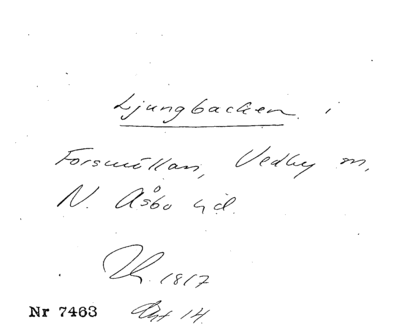 Ljungbacken i
Forsmöllan, Vedby sn,
N. Åsbo hd.
1817
Nr 7463 Akt 14.